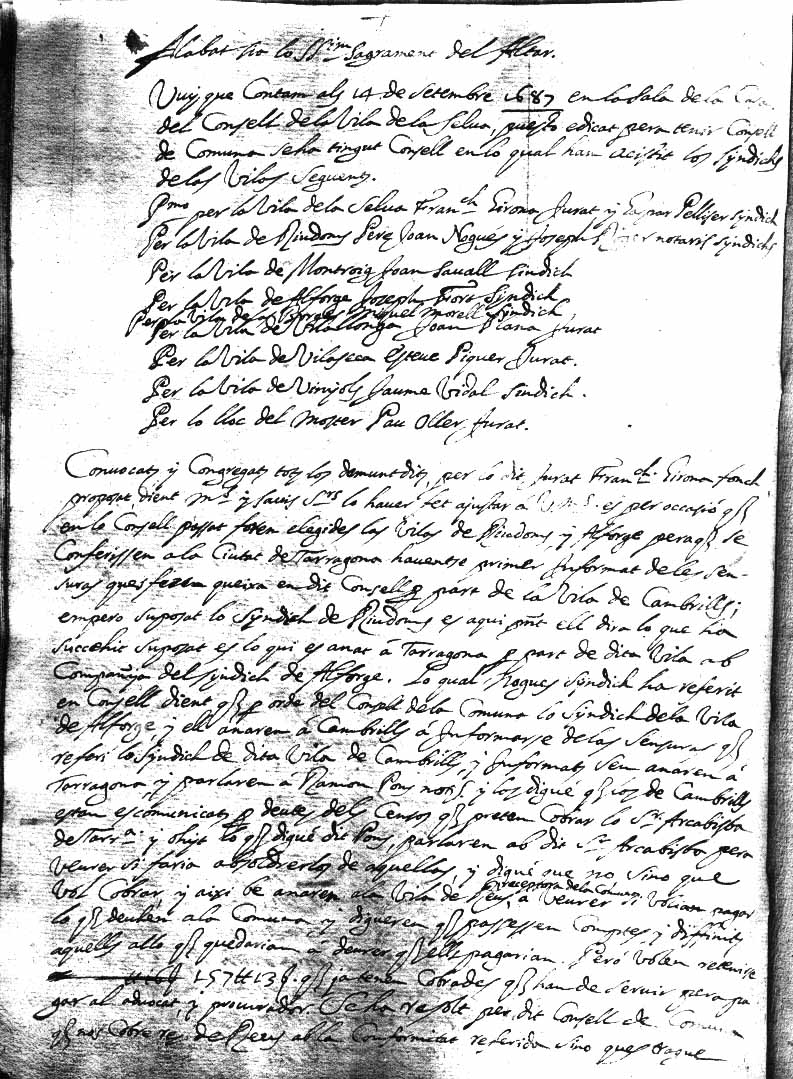 Alabat sia lo SSim Sagrament del Altar.
Vuy que Contam als 14 de setembre 1687 en la Sala de la Casa
del Consell de la Vila de la Selva, puesto edicat pera tenir Consell
de Comuna se ha tingut Consell en lo qual han acistit los syndichs
de las Vilas seguents.
Pmo per la Vila de la Selva Franch Girona Jurat y Gaspar Pelliser syndich
Per la Vila de Riudoms Pere Joan Nogues y Joseph notaris syndichs
Per la Vila de Montroig Joan Savall sindich
Per la Vila de Alforge Joseph Fort Syndich
Per la Vila de las Borges Miquel Morell Syndich
Per la Vila de Vilallonga Joan Plana Jurat
Per la Vila de Vilaseca Esteve Piquer Jurat.
Per la Vila de Vinyols Jaume Vidal sindich.
Per lo lloc del Moster Pau Oller Jurat.
Convocats y Congregats tots los demunt dits, per lo dit Jurat Franch Girona fonch
proposat dient Ms y savis Srs lo haver fet ajustar á V.M.S. es per occasió qe
en lo Consell passat foren elegides las Vilas de Riudoms y Alforge peraqe se
Conferissen a la Ciutat de Tarragona havents primer Informat de les sen-
suras ques feren queixa en dit Consell p part de la Vila de Cambrills;
empero suposat lo Syndich de Riudoms es aqui pnt ell dira lo que ha
succehit suposat es lo qui es anat á Tarragona p part de dita Vila ab
Compañyia del syndich de Alforge. Lo qual Nogues syndich ha referit
en Consell dient qe p orde del Consell de la Comuna lo syndich de la Vila
de Alforge y ell anaren á Cambrills á Informarse de las sensuras qe
referi lo syndich de dita Vila de Cambrills, y Informats sen anaren á
Tarragona, y parlaren á Ramon Pons notri y los digué qe los de Cambrills
estan escomunicats p deutes dels Censos qe preten Cobrar lo Sr Arcabisba
de Tarrа y ohyt lo qe digué dit Pons, parlaren ab dit Sr Arcabisba pera
veurer si faria absoldrerlos de aquellas, y digué que no sino que
vol Cobrar, y aixi be anaren a la Vila de Reus á veurer si volian pagar
receptora de la Comuna
lo qe deuhen a la Comuna y digueren qe passessen Comptes y diffinits
aquells allo qe quedarian á deurer qe ells pagarian. Peró volen retenirse
157 ll 13 s qe ja tenen Cobrades qe han de servir pera pa-
gar al advocat, y procurador. Se ha resolt per dit Consell de Comuna
qe nos Cobre res de Reus ab la Conformitat referida sino ques